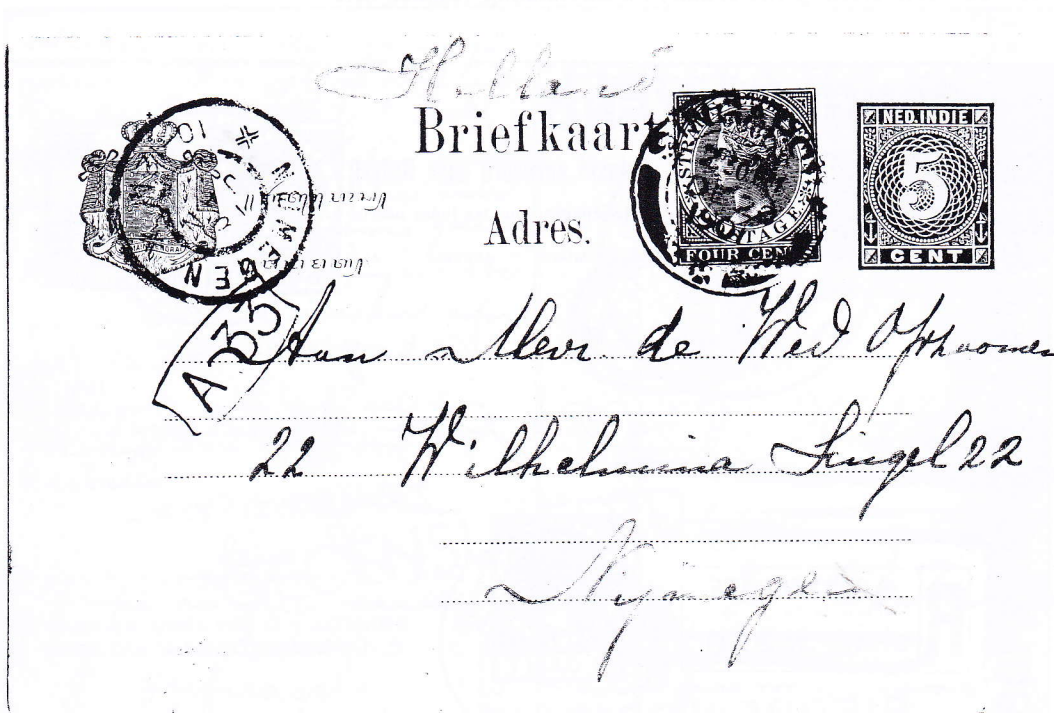 Holland
Briefkaart
Adres.
NED. INDIE
5
CENT
FOUR CEN
NIJMEGEN
A 33
Aan Mevr. de Wed
22 Wilhelmina Singel 22
Nijmegen